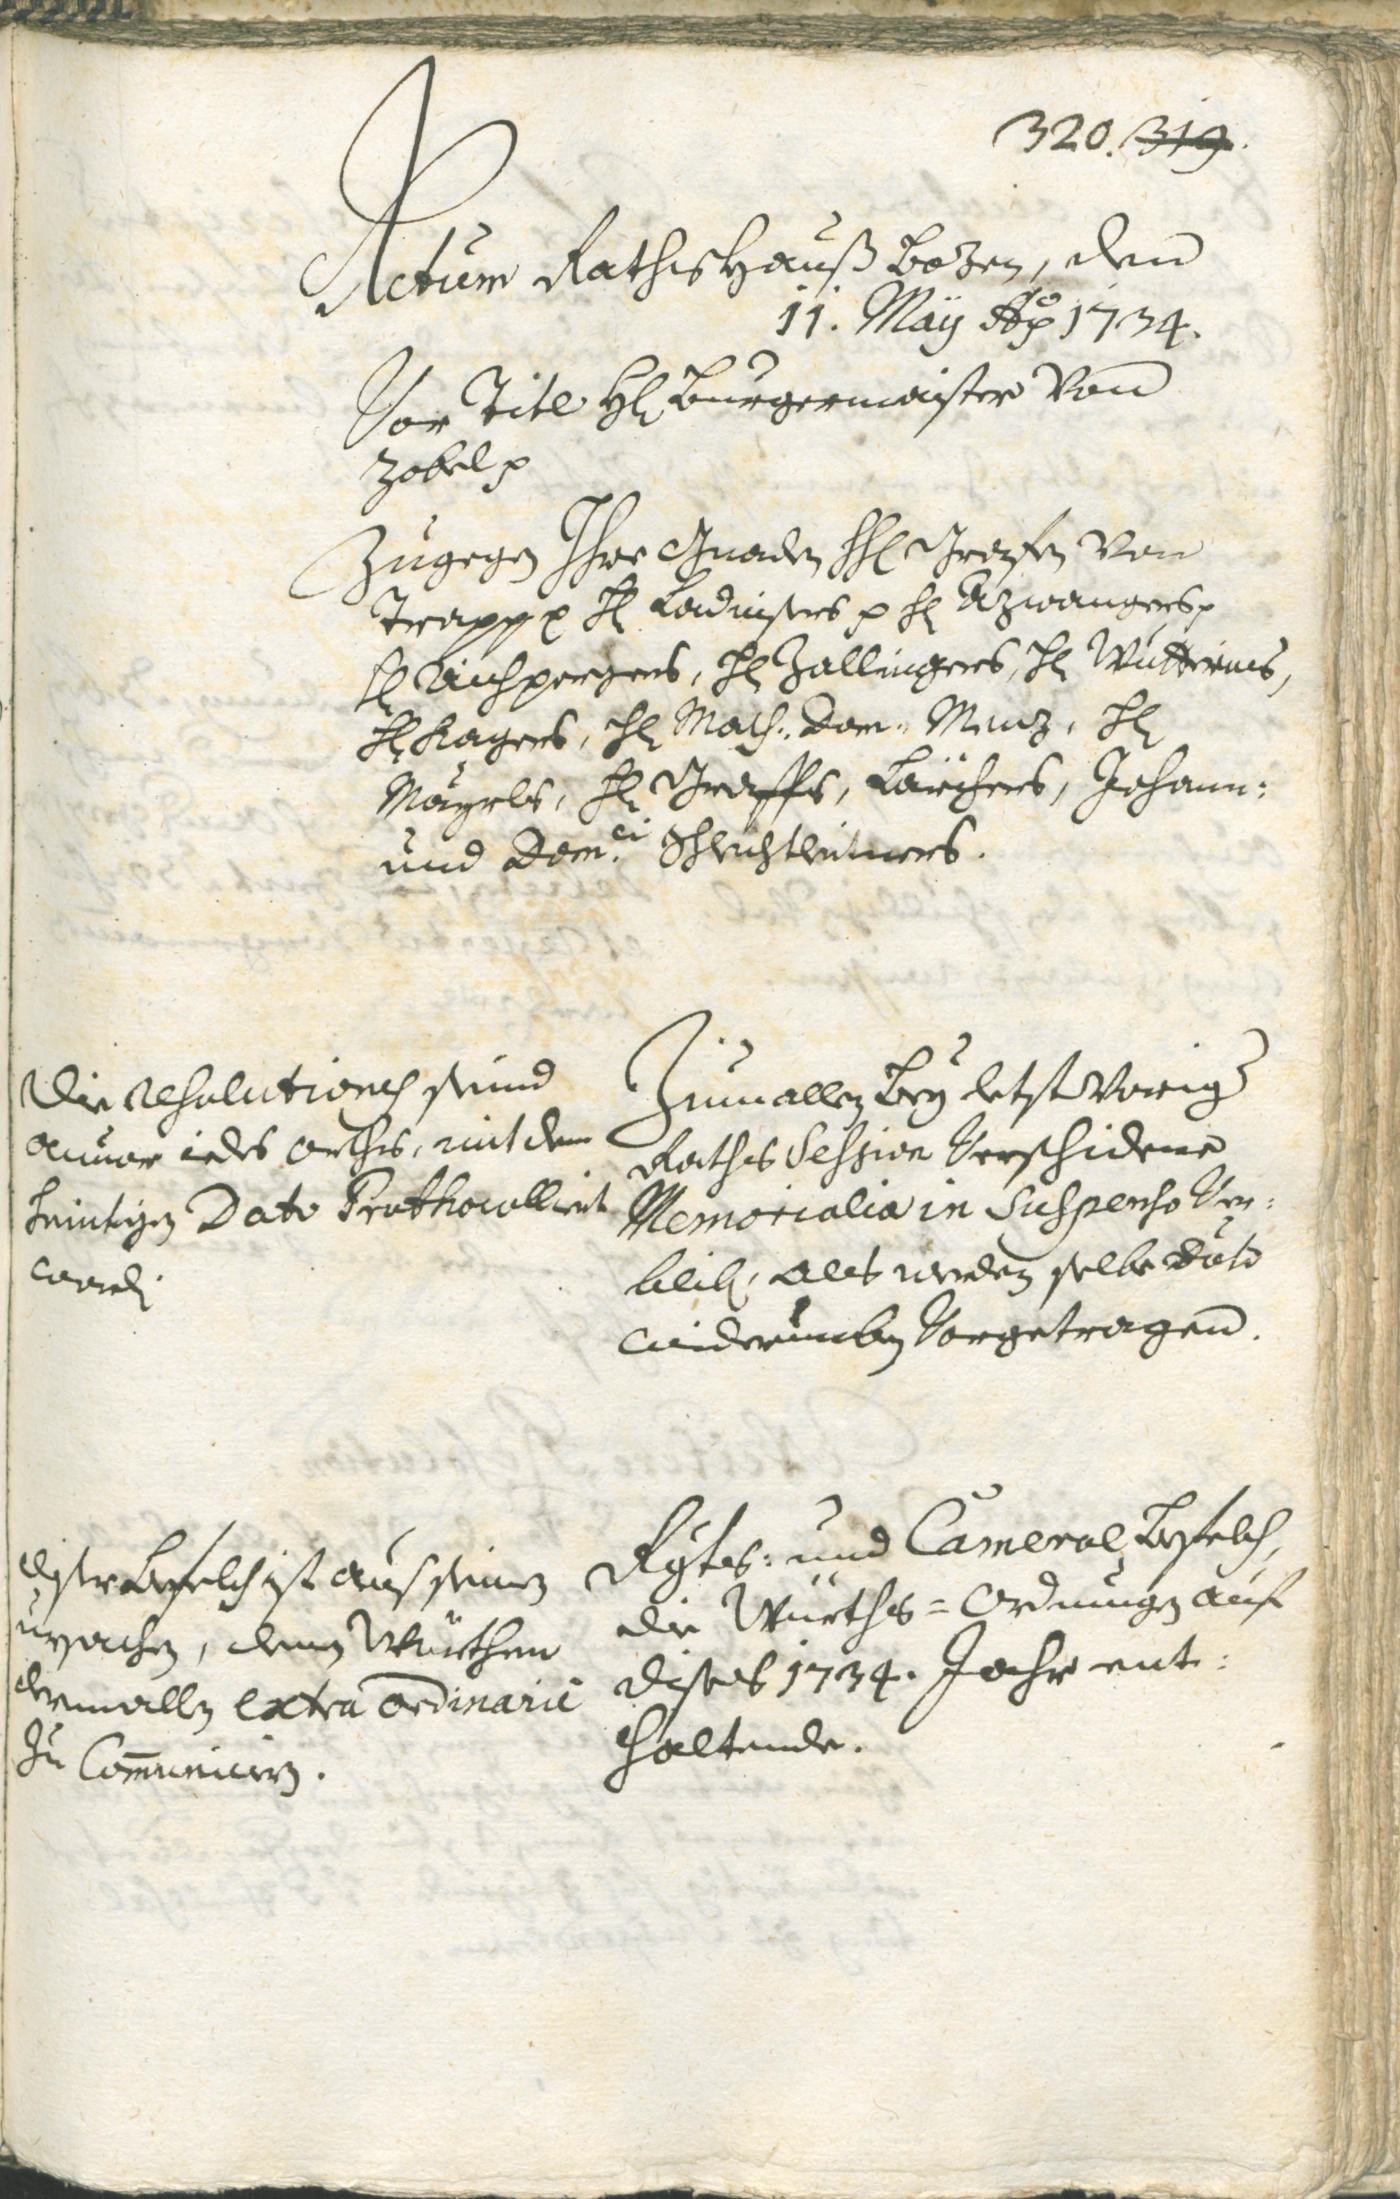 320. 319.
Actum Rathshauß Bozen, den
11. Maÿ Ao 1734.
Vor Titl H: Burgermaister von
Zobel p
Zugegen Ihre Gnaden H: Grafen von
Trapp p H: Ladinsers p H: Azwangers p
H: Aichpergers, H: Zallingers, H: Wutterins,
H: Kagers, H: Math: Dom: Menz, H:
Maÿrls, H: Graffs, Lärchers, Johann:
und Dom:ci Schlechtleitners.
Die resolutiones seind
anvor iedes orths, mit dem
heintigen Dato Prothocolliert
word:
Zumallen beÿ letst vorig:
Raths Session verschidene
Memorialia in Suspenso ver:
blib:, als werden selbe dato
widerumben vorgetragen.
diser Befelch ist aus seinen
ursachen, denen Würthen
dermallen extra ordinarie
zu Communiciern.
Rgts: und Cameral Befelch,
die Würths=Ordnungen auf
dises 1734. Jahr ent:
haltende.